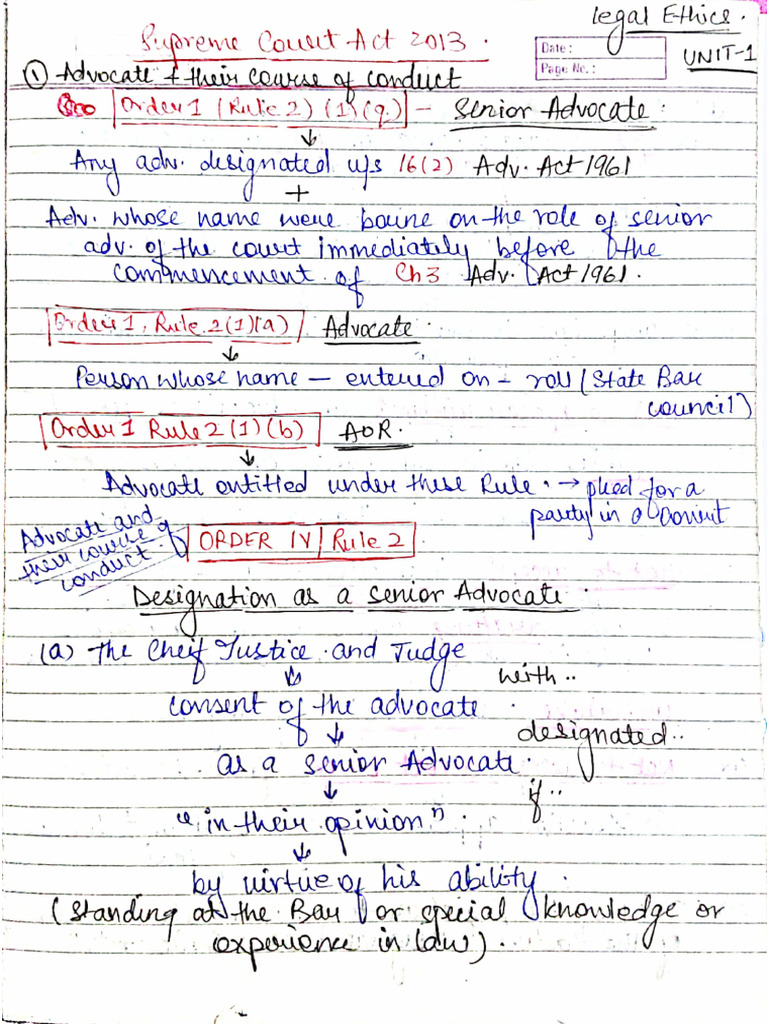 Legal Ethics.
Supreme Court Act 2013.
Date:
Page No.:
UNIT-1
① Advocate & their course of conduct
Order 1 (Rule 2) (1) (q.) - Senior Advocate.
Any adv. designated u/s 16(2) Adv. Act 1961
+
Adv. whose name were boune on the role of senior
adv. of the court immediately before the
commencement of Ch3 Adv. Act 1961.
Order 1, Rule 2(1)(a) Advocate.
Person whose name - entered on - roll (State Bar
council)
Order 1 Rule 2 (1) (b) AOR.
Advocate entitled under these Rule. → plead for a
party in a Court
Advocate and
their course of
conduct.
ORDER IV | Rule 2
Designation as a Senior Advocate.
(a) The Cheif Justice and Judge
with..
consent of the advocate
designated..
as a senior Advocate.
if..
"in their opinion".
by virtue of his ability.
(standing at the Bar or special knowledge or
experience in law).